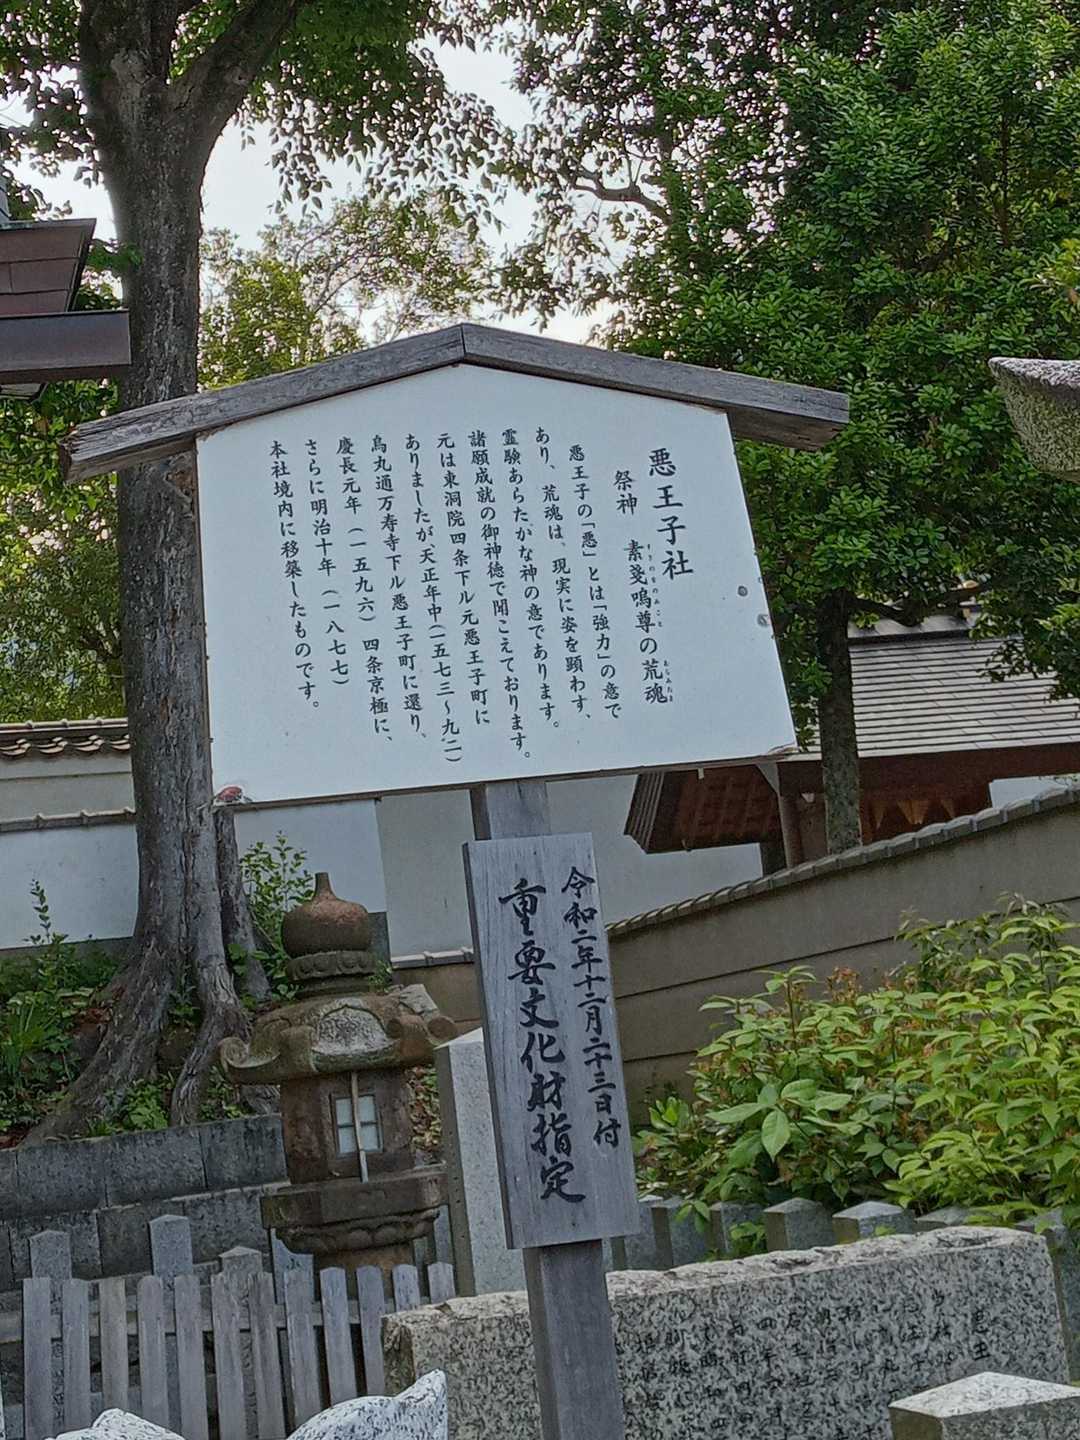 悪王子社
祭神 素戔嗚尊の荒魂
すさのをのみこと
あらみたま
悪王子の「悪」とは「強力」の意で
あり、荒魂は、現実に姿を顕わす、
霊験あらたかな神の意であります。
諸願成就の御神徳で聞こえております。
元は東洞院四条下ル元悪王子町に
ありましたが、天正年中(一五七三〜九二)
烏丸通万寿寺下ル悪王子町に還り、
慶長元年(一五九六)四条京極に、
さらに明治十年(一八七七)
本社境内に移築したものです。
令和二年十二月二十三日付
重要文化財指定